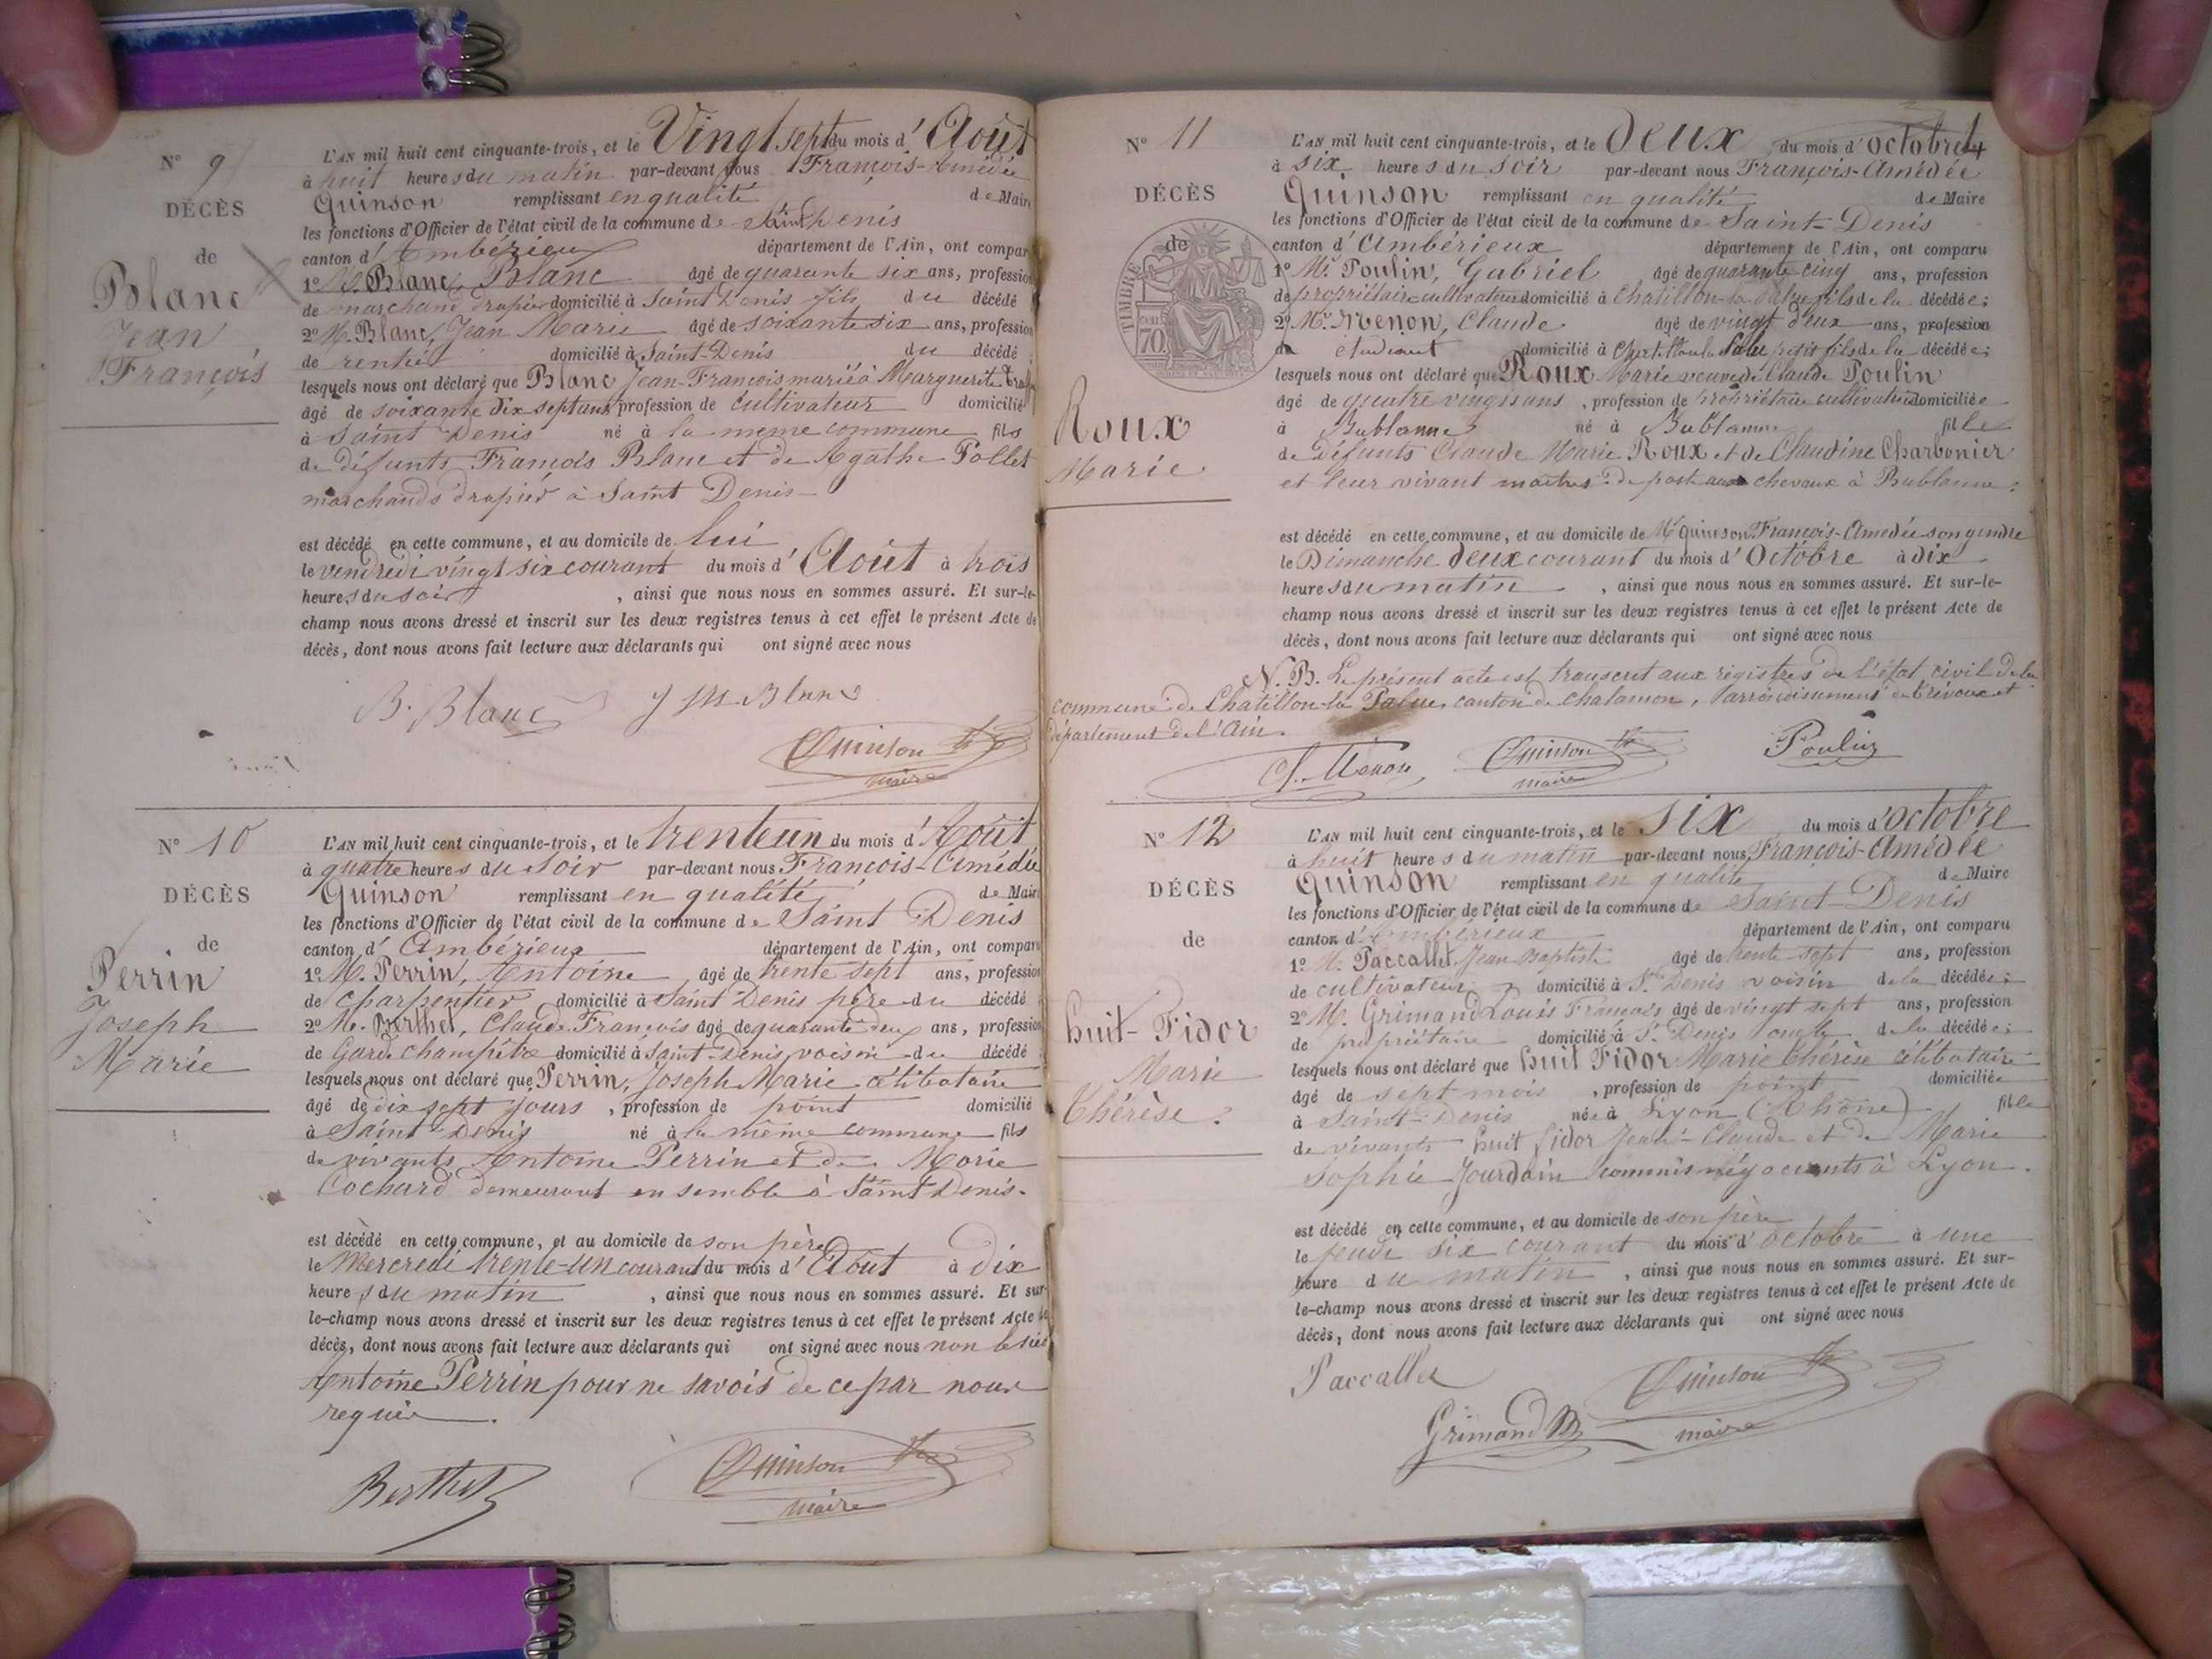 N° 9
DÉCÈS
de
Blanc
Jean
François
L'AN mil huit cent cinquante-trois, et le Vingt sept du mois d'Août
à huit heures du matin par-devant nous François-Amédée
Quinson remplissant en qualité de Maire
les fonctions d'Officier de l'état civil de la commune de Saint Denis
canton d'Ambérieux département de l'Ain, ont compar
1° M. Blanc, Blanc âgé de quarante six ans, profession
de marchand drapier domicilié à Saint Denis fils du décédé
2° M. Blanc, Jean Marie âgé de soixante six ans, profession
de rentier domicilié à Saint-Denis du décédé
lesquels nous ont déclaré que Blanc Jean-François marié à Marguerite
âgé de soixante dix sept ans, profession de cultivateur domicilié
à Saint Denis né à la même commune fils
de défunts François Blanc et de Agathe Pollet
marchands drapier à Saint Denis
est décédé en cette commune, et au domicile de lui
le vendredi vingt six courant du mois d'Août à trois
heures du soir, ainsi que nous nous en sommes assuré. Et sur-le-
champ nous avons dressé et inscrit sur les deux registres tenus à cet effet le présent Acte de
décès, dont nous avons fait lecture aux déclarants qui ont signé avec nous
B. Blanc J M Blanc
Quinson
maire
N° 10
DÉCÈS
de
Perrin
Joseph
Marie
L'AN mil huit cent cinquante-trois, et le trente un du mois d'Août
à quatre heures du soir par-devant nous François-Amédée
Quinson remplissant en qualité de Maire
les fonctions d'Officier de l'état civil de la commune de Saint Denis
canton d'Ambérieux département de l'Ain, ont comparu
1° M. Perrin, Antoine âgé de trente sept ans, profession
de charpentier domicilié à Saint Denis père du décédé
2° M. Berthet, Claude François âgé de quarante deux ans, profession
de Garde champêtre domicilié à Saint-Denis voisin du décédé
lesquels nous ont déclaré que Perrin, Joseph Marie célibataire
âgé de dix sept jours, profession de point domicilié
à Saint-Denis né à la même commune fils
de vivants Antoine Perrin et de Marie
Cochard demeurant ensemble à Saint Denis.
est décédé en cette commune, et au domicile de son père
le Mercredi trente-un courant du mois d'Août à dix
heures du matin, ainsi que nous nous en sommes assuré. Et sur-
le-champ nous avons dressé et inscrit sur les deux registres tenus à cet effet le présent Acte de
décès, dont nous avons fait lecture aux déclarants qui ont signé avec nous non le sieur
Antoine Perrin pour ne savois de ce par nous
requis.
Berthet
Quinson
maire
N° 11
DÉCÈS
de
TIMBRE
70
Roux
Marie
L'AN mil huit cent cinquante-trois, et le deux du mois d'octobre
à six heures du soir par-devant nous François-Amédée
Quinson remplissant en qualité de Maire
les fonctions d'Officier de l'état civil de la commune de Saint-Denis
canton d'Ambérieux département de l'Ain, ont comparu
1° Mr. Poulin, Gabriel âgé de quarante cinq ans, profession
de propriétaire cultivateur domicilié à Chatillon la Palue fils de la décédée;
2° Mr. Menon, Claude âgé de vingt deux ans, profession
de étudiant domicilié à Chatillon la Palue petit fils de la décédée;
lesquels nous ont déclaré que Roux Marie veuve de Claude Poulin
âgé de quatre vingts ans, profession de propriétaire cultivatrice domiciliée
à Bublanne né à Bublanne fille
de défunts Claude Marie Roux et de Claudine Charbonier
et leur vivant maitres de poste aux chevaux à Bublanne;
est décédé en cette commune, et au domicile de Mr Quinson François-Amédée son gendre
le Dimanche deux courant du mois d'Octobre à dix
heures du matin, ainsi que nous nous en sommes assuré. Et sur-le-
champ nous avons dressé et inscrit sur les deux registres tenus à cet effet le présent Acte de
décès, dont nous avons fait lecture aux déclarants qui ont signé avec nous
N. B. Le présent acte est transcrit aux régistres de l'état civil de la
commune de Chatillon-la Palue, canton de Chalamon, l'arrondissement de Trévoux et
département de l'Ain.
C. Menon
Quinson
maire
Poulin
N° 12
DÉCÈS
de
huit-Fidor
Marie
Thérèse.
L'AN mil huit cent cinquante-trois, et le six du mois d'octobre
à huit heures du matin par-devant nous François-Amédée
Quinson remplissant en qualité de Maire
les fonctions d'Officier de l'état civil de la commune de Saint-Denis
canton d'Ambérieux département de l'Ain, ont comparu
1° M. Paccallet Jean Baptiste âgé de trente-sept ans, profession
de cultivateur domicilié à St. Denis voisin de la décédée;
2° M. Grimand Louis François âgé de vingt sept ans, profession
de propriétaire domicilié à St. Denis oncle de la décédée;
lesquels nous ont déclaré que huit Fidor Marie Thérèse célibataire
âgé de sept mois, profession de point domiciliée
à Saint-Denis née à Lyon (Rhône) fille
de vivants huit fidor Jean-Claude et de Marie
Sophie Jourdain commis négociants à Lyon.
est décédé en cette commune, et au domicile de son père
le jeudi six courant du mois d'octobre à une
heure du matin, ainsi que nous nous en sommes assuré. Et sur-
le-champ nous avons dressé et inscrit sur les deux registres tenus à cet effet le présent Acte de
décès, dont nous avons fait lecture aux déclarants qui ont signé avec nous
Paccallet
Quinson
Grimand
maire